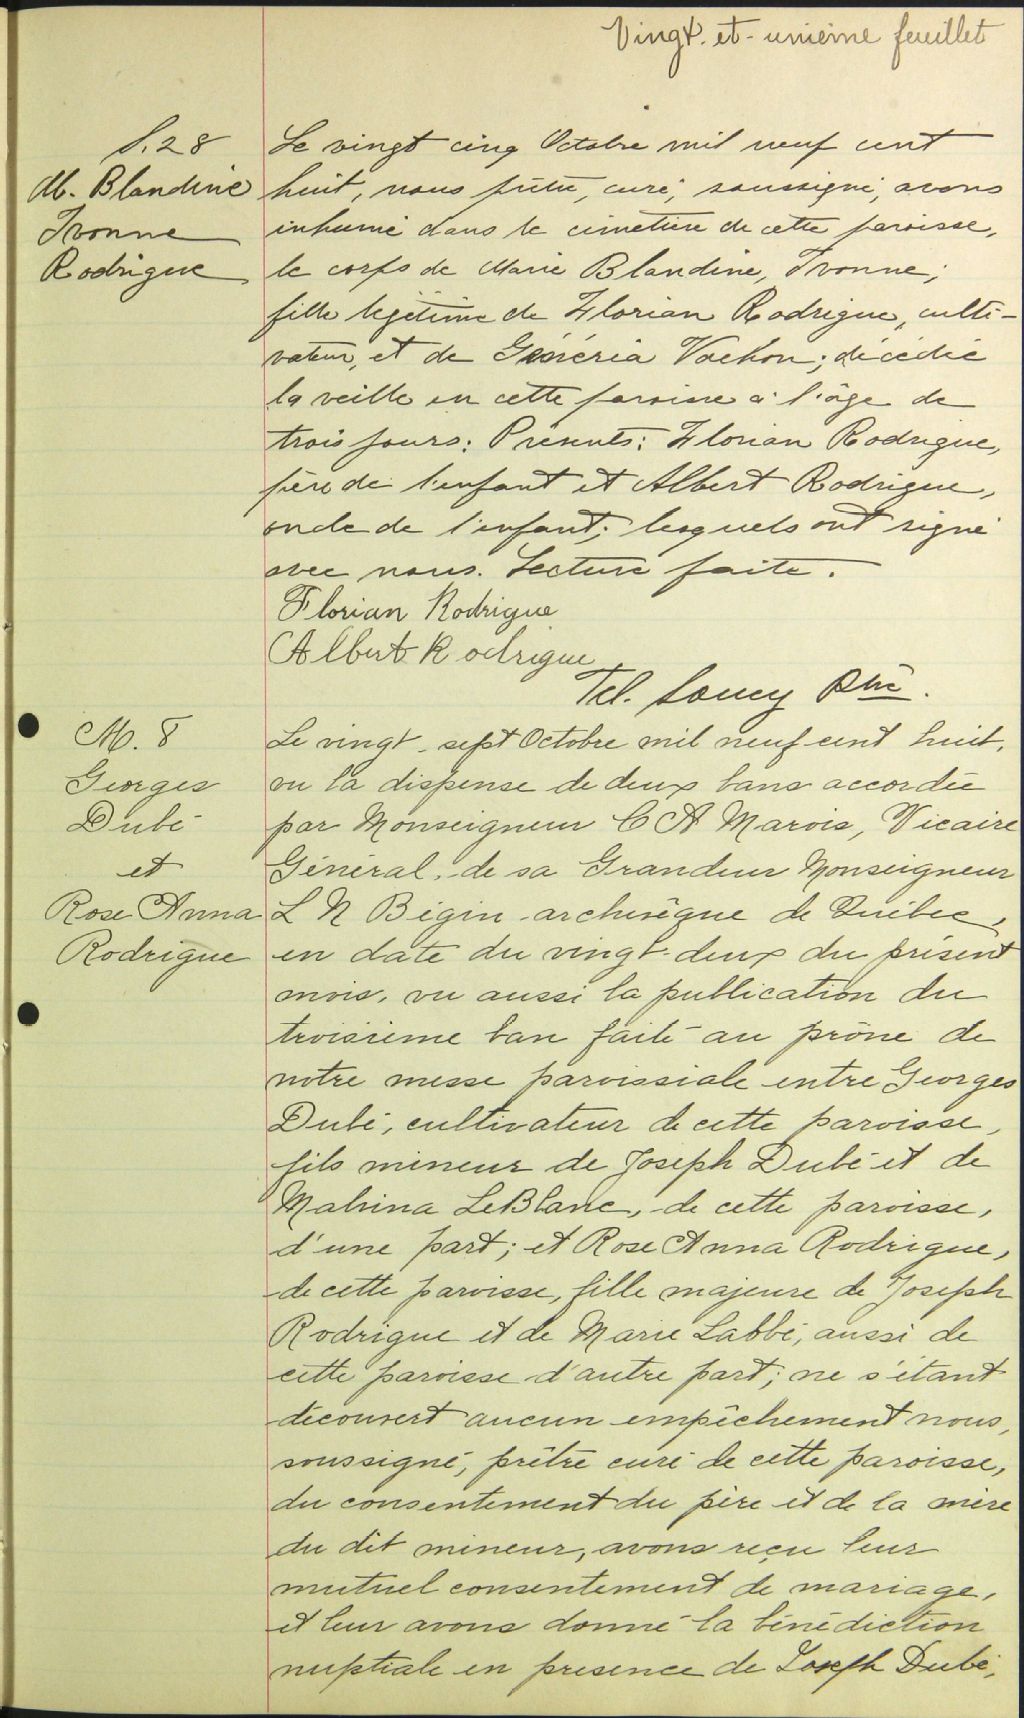 Vingt-et-unième feuillet
S. 28
M. Blandine
Ivonne
Rodrigue
Le vingt cinq Octobre mil neuf cent
huit, nous prêtre, curé, soussigné, avons
inhumé dans le cimetière de cette paroisse,
le corps de Marie Blandine, Ivonne;
fille légitime de Florian Rodrigue, culti-
vateur, et de Vachon; décédée
la veille en cette paroisse à l'âge de
trois jours: Présents: Florian Rodrigue,
père de l'enfant et Albert Rodrigue,
oncle de l'enfant; lesquels ont signé
avec nous. Lecture faite.
Florian Rodrigue
Albert Rodrigue
Tél. Soucy Ptre.
M. 8
Georges
Dubé
et
Rose Anna
Rodrigue
Le vingt-sept Octobre mil neuf cent huit,
vu la dispense de deux bans accordée
par Monseigneur C A Marois, Vicaire
Général, de sa Grandeur Monseigneur
L N Bégin archevêque de Québec,
en date du vingt-deux du présent
mois, vu aussi la publication du
troisième ban faite au prône de
notre messe paroissiale entre Georges
Dubé, cultivateur de cette paroisse,
fils mineur de Joseph Dubé et de
Malvina LeBlanc, de cette paroisse,
d'une part; et Rose Anna Rodrigue,
de cette paroisse, fille majeure de Joseph
Rodrigue et de Marie Labbé, aussi de
cette paroisse d'autre part; ne s'étant
découvert aucun empêchement nous,
soussigné, prêtre curé de cette paroisse,
du consentement du père et de la mère
du dit mineur, avons reçu leur
mutuel consentement de mariage,
et leur avons donné la bénédiction
nuptiale en présence de Joseph Dubé,